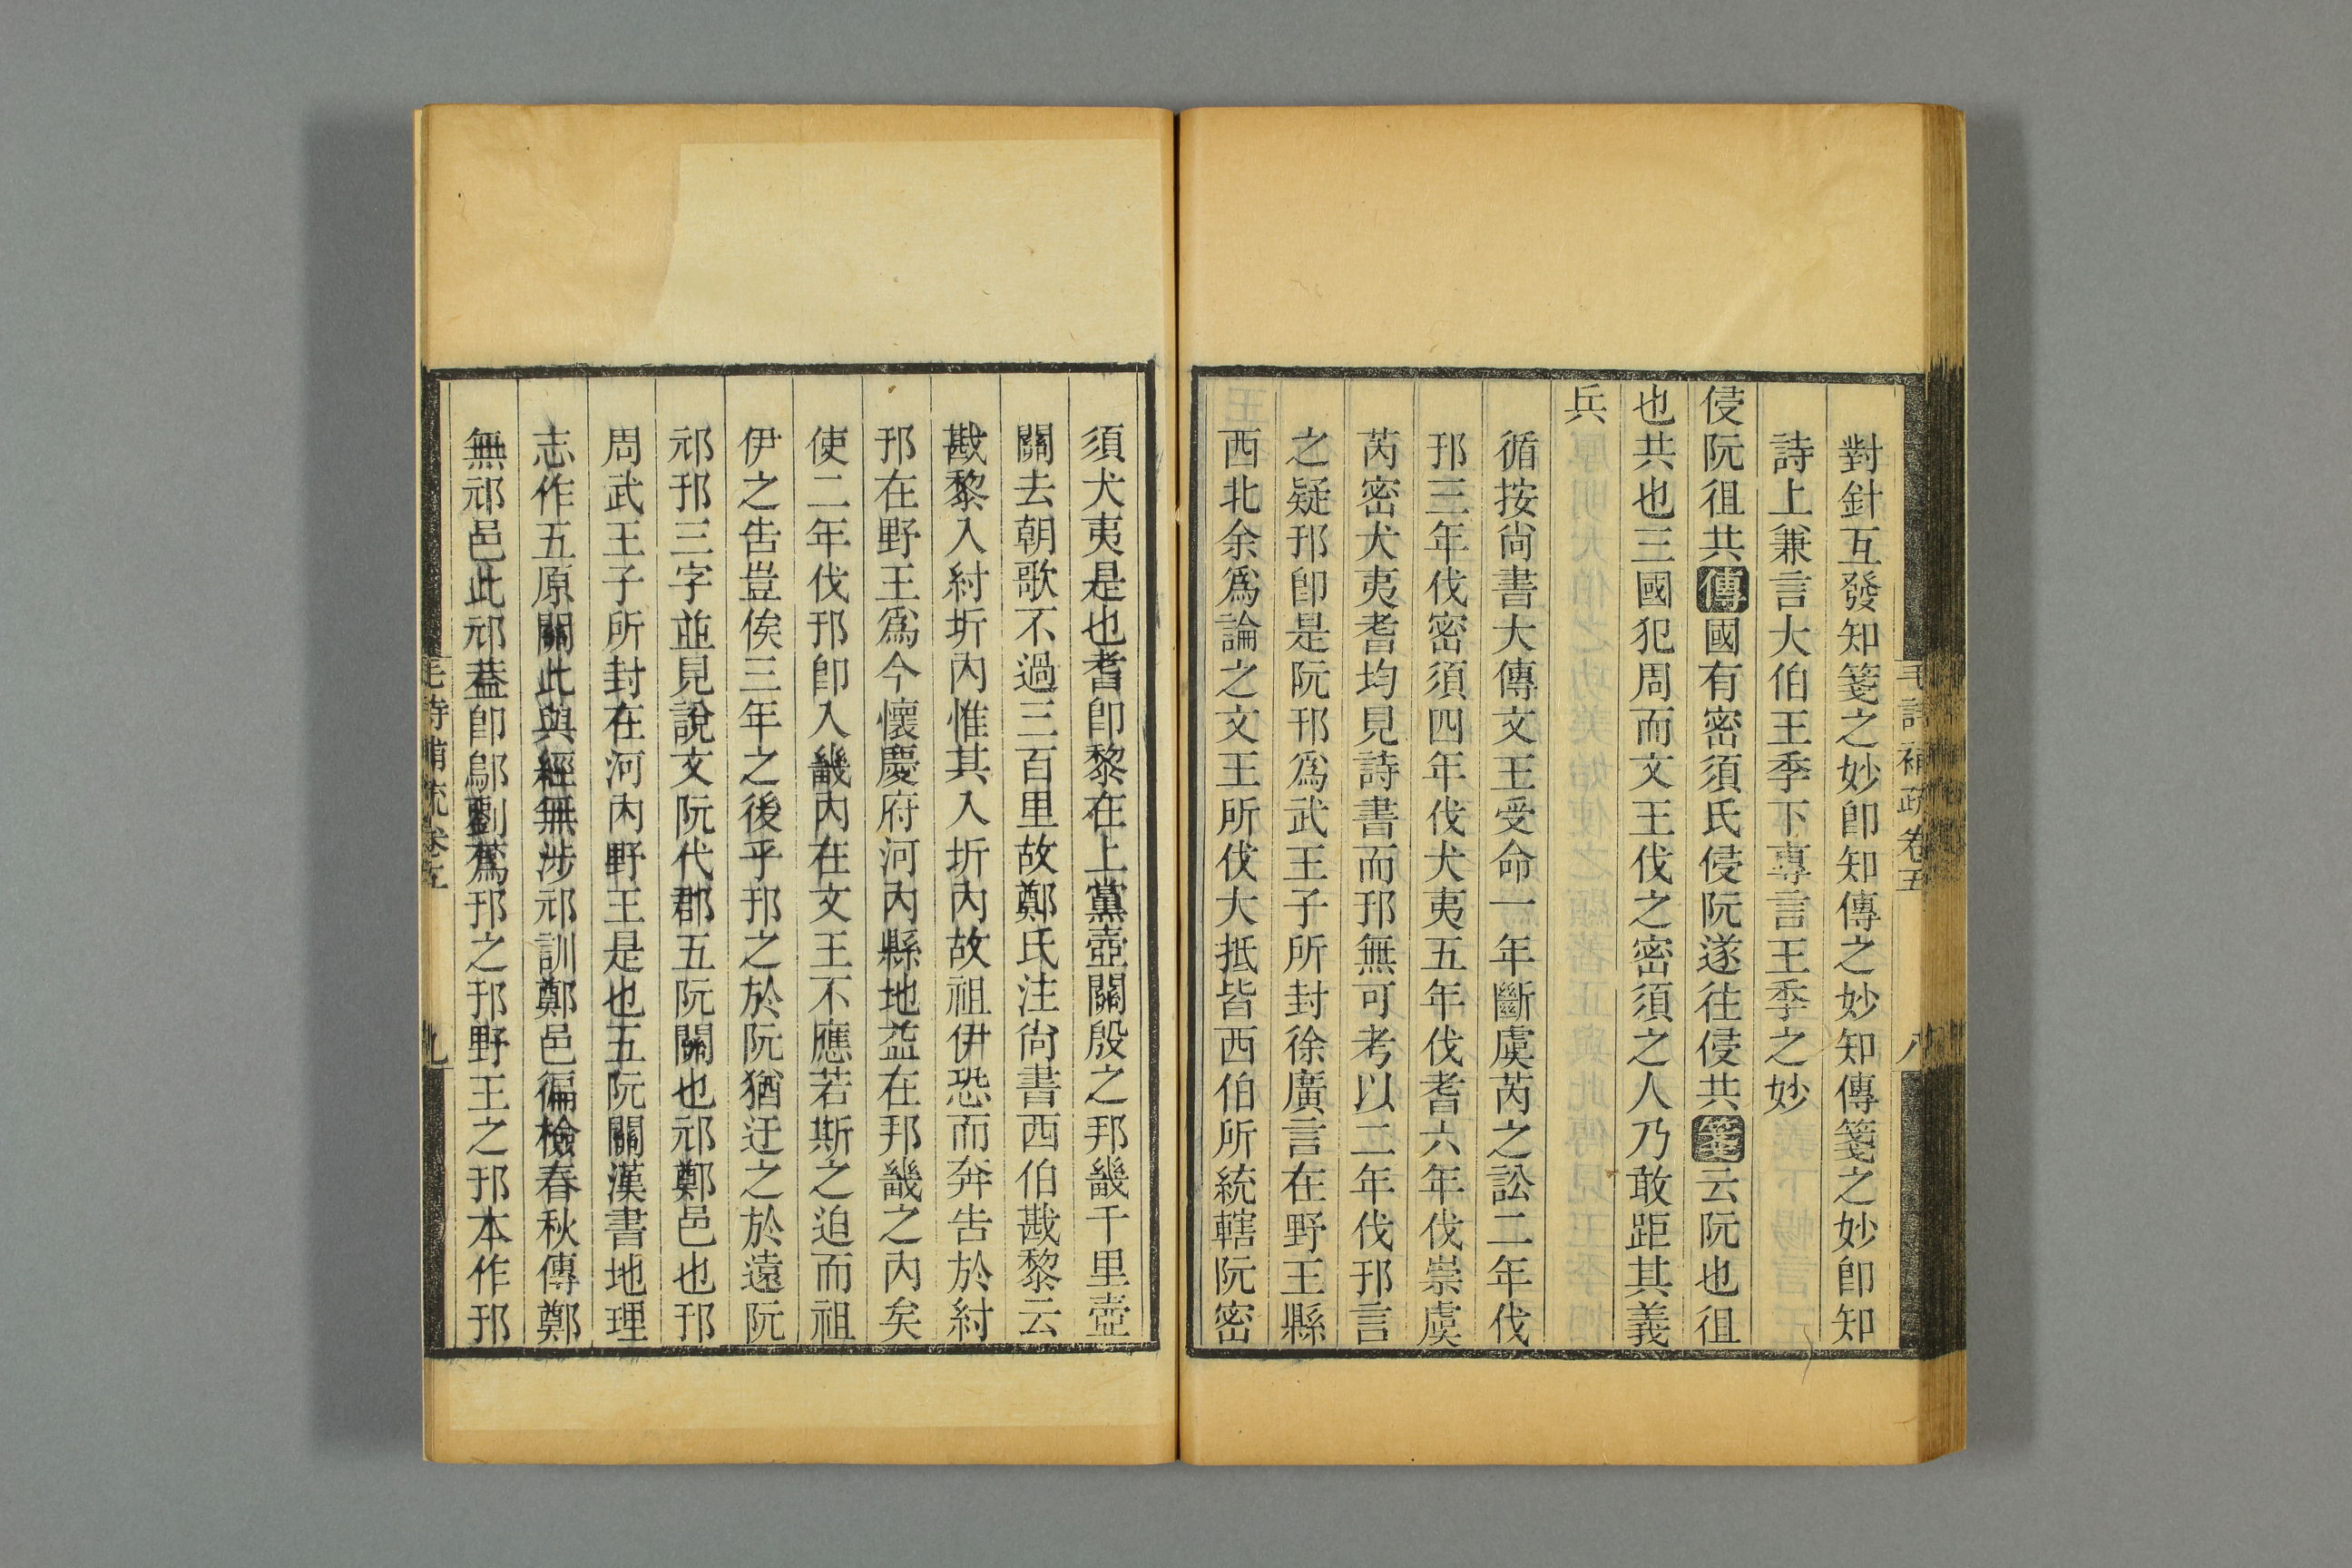 毛詩補疏卷五
八
對針互發知箋之妙卽知傳之妙知傳箋之妙卽知
詩上兼言大伯王季下專言王季之妙
侵阮徂共傳國有密須氏侵阮遂往侵共箋云阮也徂
也共也三國犯周而文王伐之密須之人乃敢距其義
兵
循按尚書大傳文王受命一年斷虞芮之訟二年伐
邘三年伐密須四年伐犬夷五年伐耆六年伐崇虞
芮密犬夷耆均見詩書而邘無可考以二年伐邘言
之疑邘卽是阮邘爲武王子所封徐廣言在野王縣
西北余爲論之文王所伐大抵皆西伯所統轄阮密
須犬夷是也耆卽黎在上黨壺關殷之邦畿千里壺
關去朝歌不過三百里故鄭氏注尚書西伯戡黎云
戡黎入紂圻內惟其入圻內故祖伊恐而奔告於紂
邘在野王爲今懷慶府河內縣地益在邦畿之內矣
使二年伐邘卽入畿內在文王不應若斯之迫而祖
伊之告豈俟三年之後乎邘之於阮猶迂之於遠阮
祁邘三字並見說文阮代郡五阮關也祁鄭邑也邘
周武王子所封在河內野王是也五阮關漢書地理
志作五原關此與經無涉祁訓鄭邑徧檢春秋傳鄭
無祁邑此祁蓋卽鄔劉蔿邘之邘野王之邘本作邘
毛詩補疏卷五
九